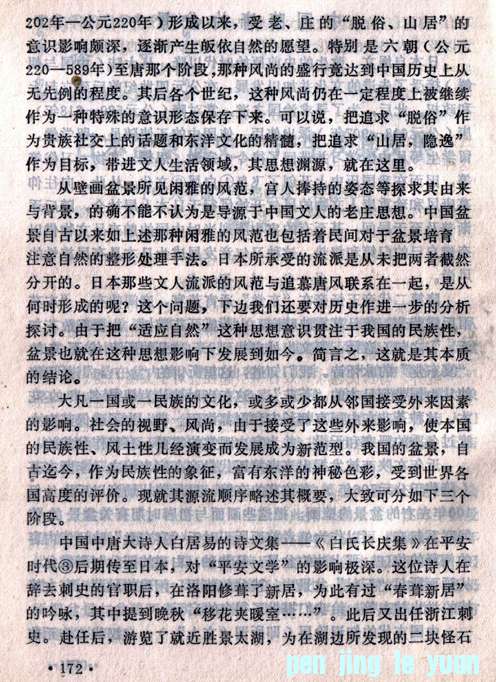 202年—公元220年）形成以来，受老、庄的“脱俗、山居”的
意识影响颇深，逐渐产生皈依自然的愿望。特别是六朝（公元
220—589年）至唐那个阶段，那种风尚的盛行竟达到中国历史上从
无先例的程度。其后各个世纪，这种风尚仍在一定程度上被继续
作为一种特殊的意识形态保存下来。可以说，把追求“脱俗”作
为贵族社交上的话题和东洋文化的精髓，把追求“山居，隐逸”
作为目标，带进文人生活领域，其思想渊源，就在这里。
从壁画盆景所见闲雅的风范，宫人捧持的姿态等探求其由来
与背景，的确不能不认为是导源于中国文人的老庄思想。中国盆
景自古以来如上述那种闲雅的风范也包括着民间对于盆景培育
注意自然的整形处理手法。日本所承受的流派是从未把两者截然
分开的。日本那些文人流派的风范与追慕唐风联系在一起，是从
何时形成的呢？这个问题，下边我们还要对历史作进一步的分析
探讨。由于把“适应自然”这种思想意识贯注于我国的民族性，
盆景也就在这种思想影响下发展到如今。简言之，这就是其本质
的结论。
大凡一国或一民族的文化，或多或少都从邻国接受外来因素
的影响。社会的视野、风尚，由于接受了这些外来影响，使本国
的民族性、风土性几经演变而发展成为新范型。我国的盆景，自
古迄今，作为民族性的象征，富有东洋的神秘色彩，受到世界各
国高度的评价。现就其源流顺序略述其概要，大致可分如下三个
阶段。
中国中唐大诗人白居易的诗文集——《白氏长庆集》在平安
时代⑧后期传至日本，对“平安文学”的影响极深。这位诗人在
辞去刺史的官职后，在洛阳修葺了新居，为此有过“春葺新居”
的吟咏，其中提到晚秋“移花夹暖室……”。此后又出任浙江刺
史。赴任后，游览了就近胜景太湖，为在湖边所发现的二块怪石
·172·
pen jing le yuan